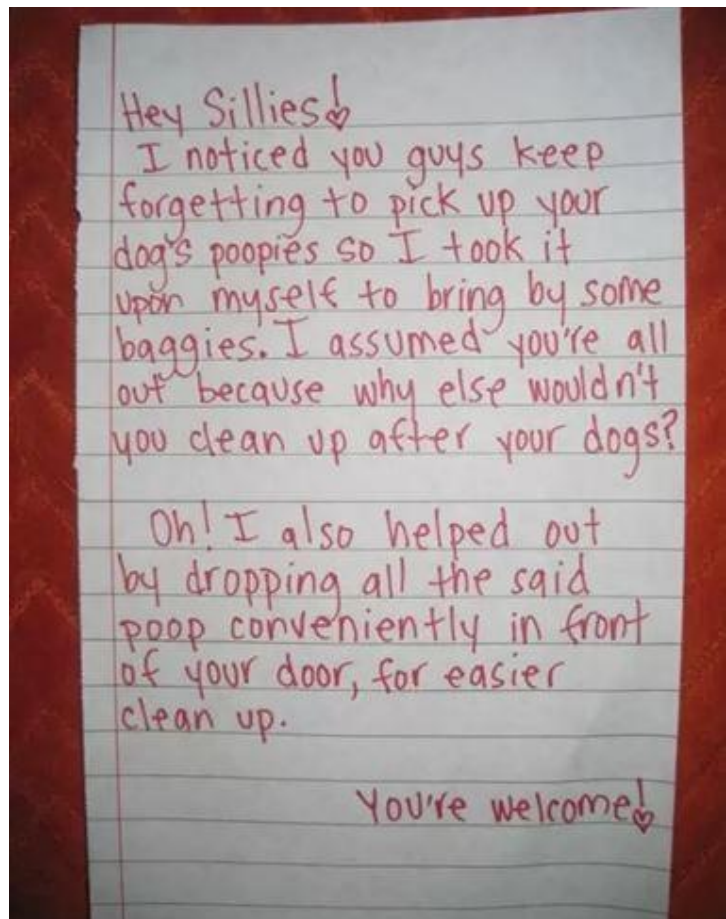 Hey Sillies!
I noticed you guys keep
forgetting to pick up your
dog's poopies so I took it
upon myself to bring by some
baggies. I assumed you're all
out because why else wouldn't
you clean up after your dogs?
Oh! I also helped out
by dropping all the said
poop conveniently in front
of your door, for easier
clean up.
You're welcome!